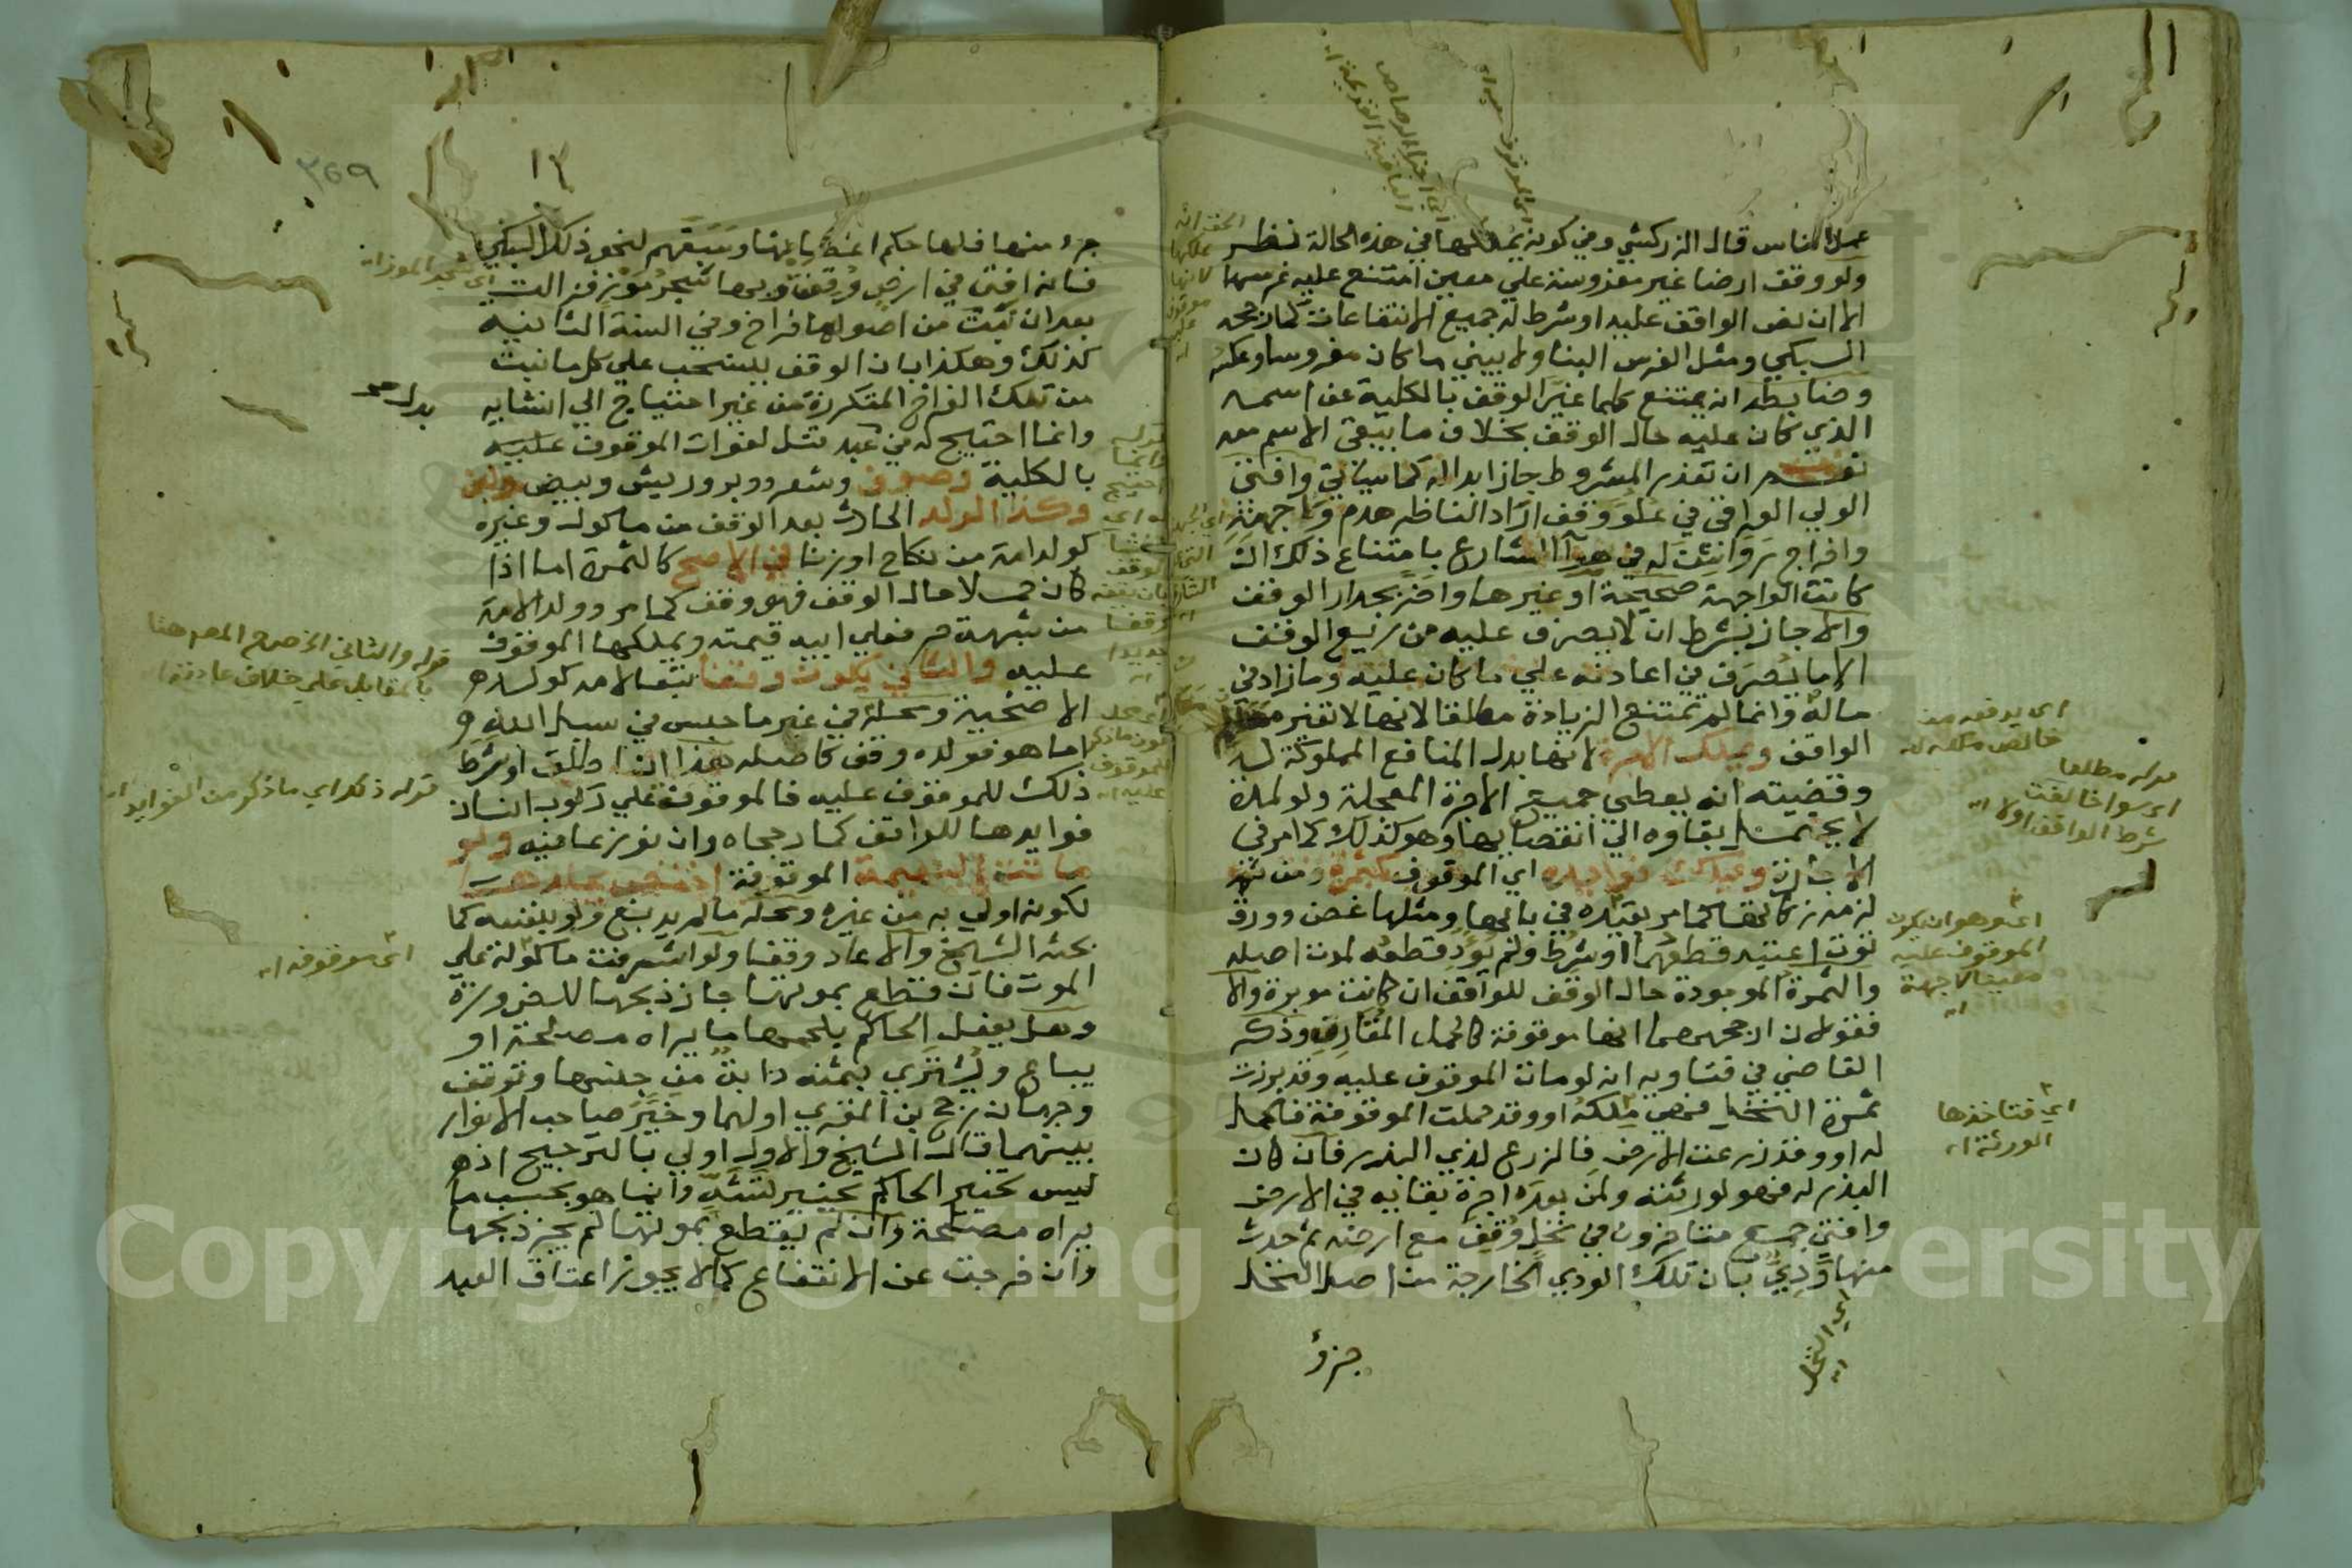 عمل الناس قال الزركشي وفي كونه يملكها في هذه الحالة نظر
ولو وقف ارضا غير مغروسة علي معين امتنع عليه غرسها
الا ان نص الواقف عليه او شرط له جميع الانتفاعات كما رجحه
السبكي ومثل الغرس البنا ولا يبني ما كان مغروسا وعكسه
وضابطه انه يمتنع كلما غير الوقف بالكلية عن اسمه
الذي كان عليه حال الوقف بخلاف ما يبقي الاسم معه
نعم ان تعذر المشروط جاز ابداله كما سياتي وافتي
الولي العراقي في علو وقف اراد الناظر هدم واجهته
واخراج رواشن له في هوا الشارع بامتناع ذلك ان
كانت الواجهة صحيحة او غيرها واضر بجدار الوقف
والا جاز بشرط ان لا يصرف عليه من ريع الوقف
الا ما يصرف في اعادته علي ما كان عليه وما زاد في
ماله وانما لم تمتنع الزيادة مطلقا لانها لا تغير معالم
الواقف ويملك الاجرة لانها بدل المنافع المملوكة له
وقضيته انه يعطي جميع الاجرة المعجلة ولو لمدة
لا يحتمل بقاوه الي انقضايها وهو كذلك كما مر في
الاجارة ويملك فوايده اي الموقوف كثمرة ومن ثم
لزمه زكاتها كما مر بقيده في بابها ومثلها غصن وورق
توت اعتيد قطعهما او شرط ولم يود قطعه لموت اصله
والثمرة الموجودة حال الوقف للواقف ان كانت موبرة والا
فقولان ارجحهما انها موقوفة كالحمل المقارن وذكر
القاضي في فتاويه انه لو مات الموقوف عليه وقد برزت
ثمرة النخل فهي ملكه او وقد حملت الموقوفة فالحمل
له او وقد زرعت الارض فالزرع لذي البذر فان كان
البذر له فهو لورثته ولمن بعده اجرة بقايه في الارض
وافتي جمع متاخرون في نخل وقف مع ارضه ثم حدث
منها ودي بان تلك الودي الخارجة من اصل النخل
جزؤ
اي يدفعه من
خالص ملكه له
قوله مطلقا
اي سوا خالفت
شرط الواقف او لا اه
اي وهو ان يكون
الموقوف عليه
معينا لا جهة
اه
اي فتاخذها
الورثة اه
اي النخل
اه
١٢
٣٥٩
جزء منها فلها حكم امه بابها وسبقهم لنحو ذلك السبكي
فانه افتي في ارض وقفت وبها شجر موز فزالت
بعد ان نبت من اصولها فراخ وفي السنة الثانية
كذلك وهكذا بان الوقف ينسحب علي كل ما نبت
من تلك الفراخ المتكررة من غير احتياج الي انشايه
وانما احتيج له في عبد قتل لفوات الموقوف عليه
بالكلية وصوف وشعر ووبر وريش وبيض ولبن
وكذا الولد الحادث بعد الوقف من ماكول وغيره
كولد امة من نكاح او زنا في الاصح كالثمرة اما اذا
كان حملا حال الوقف فهو وقف كما مر وولد الامة
من شبهة حر فعلي ابيه قيمته ويملكها الموقوف
عليه والثاني يكون وقفا تبعا لامه كولد
الاضحية ومحله في غير ما حبس في سبيل الله
اما هو فولده وقف كاصله هذا ان اطلق او شرط
ذلك للموقوف عليه فالموقوفة علي ركوب انسان
فوايدها للواقف كما رجحاه وان نوزعا فيه ولو
ماتت البهيمة الموقوفة اختص بجلدها
لكونه اولي به من غيره ومحله ما لم يدبغ ولو بنفسه كما
بحثه الشيخ والا عاد وقفا ولو اشرفت ماكولة علي
الموت فان قطع بموتها جاز ذبحها للضرورة
وهل يفعل الحاكم بلحمها ما يراه مصلحة او
يباع ويشتري بثمنه دابة من جنسها وتوقف
وجهان رجح بن المقري اولهما وخير صاحب الانوار
بينهما قال الشيخ والاول اولي بالترجيح اذ
ليس تخيير الحاكم تخيير تشه وانما هو بحسب ما
يراه مصلحة وان لم يقطع بموتها لم يجز ذبحها
وان خرجت عن الانتفاع كما لا يجوز اعتاق العبد
اي شجر الموز اه
قوله والثاني الخ صرح المص هنا
بالمقابل علي خلاف عادته اه
قوله ذلك اي ما ذكر من الفوايد اه
اي موقوفه اه
Copyright © King Saud University